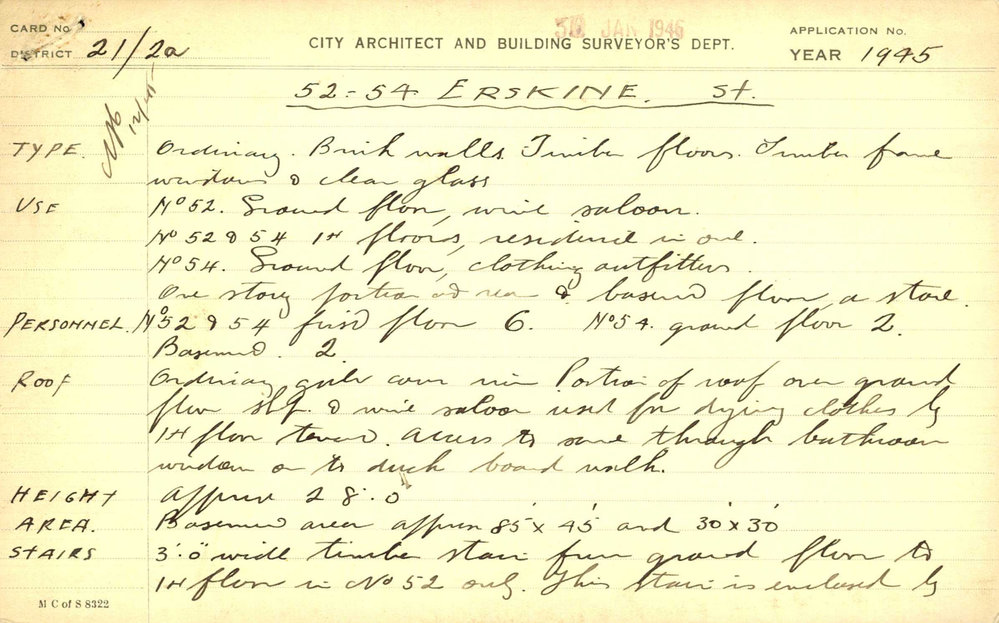 CARD No.
30 JAN 1946
APPLICATION No.
DISTRICT 21/2a
CITY ARCHITECT AND BUILDING SURVEYOR'S DEPT.
YEAR 1945
52-54 ERSKINE. St.
12/4/45
TYPE. Ordinary. Brick walls. Timber floors. Timber frame
windows & clear glass
USE No 52. Ground floor, wine saloon.
No 52 & 54 1st floors, residence in one.
No 54. Ground floor, clothing outfitters.
One story portion at rear & basement floor, a store.
PERSONNEL. No 52 & 54 first floor 6. No 54. ground floor 2.
Basement. 2.
ROOF Ordinary Portion of roof over ground
floor & wine saloon used for drying clothes by
1st floor tenant. Access to same through bathroom
window on to duck board walk.
HEIGHT Approx 28'.0
AREA. Basement area approx 85' x 45' and 30' x 30'
STAIRS 3'.0" wide timber stair from ground floor to
1st floor in No 52 only. This stair is enclosed by
M C of S 8322